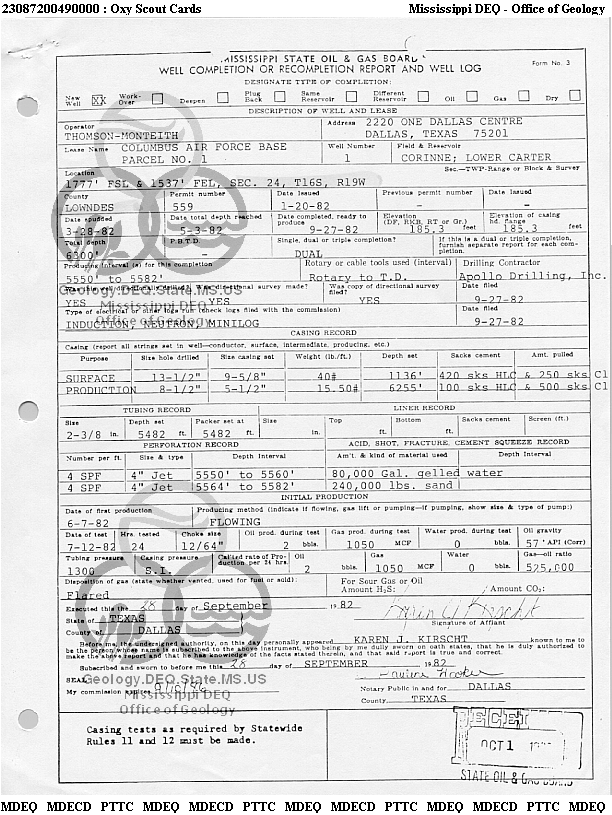 23087200490000 : Oxy Scout Cards Mississippi DEQ - Office of Geology
MISSISSIPPI STATE OIL & GAS BOARD
WELL COMPLETION OR RECOMPLETION REPORT AND WELL LOG Form No. 3
DESIGNATE TYPE OF COMPLETION:
New Well XX Work-Over Deepen Plug Back Same Reservoir Different Reservoir Oil Gas Dry
DESCRIPTION OF WELL AND LEASE
Operator Address 2220 ONE DALLAS CENTRE
THOMSON-MONTEITH DALLAS, TEXAS 75201
Lease Name COLUMBUS AIR FORCE BASE Well Number Field & Reservoir
PARCEL NO. 1 1 CORINNE; LOWER CARTER
Location Sec.—TWP-Range or Block & Survey
1777' FSL & 1537' FEL, SEC. 24, T16S, R19W
County Permit number Date Issued Previous permit number Date Issued
LOWNDES 559 1-20-82 - -
Date spudded Date total depth reached Date completed, ready to produce Elevation (DF, RKB, RT or Gr.) Elevation of casing hd. flange
3-28-82 5-3-82 9-27-82 185.3 feet 185.3 feet
Total depth P.B.T.D. Single, dual or triple completion? If this is a dual or triple completion, furnish separate report for each completion.
6300' - DUAL
Producing interval (s) for this completion Rotary or cable tools used (interval) Drilling Contractor
5550' to 5582' Rotary to T.D. Apollo Drilling, Inc.
Was this well directionally drilled? Was directional survey made? Was copy of directional survey filed? Date filed
Geology.DEQ.State.MS.US
YES YES YES 9-27-82
Mississippi DEQ
Type of electrical or other logs run (check logs filed with the commission) Date filed
Office of Geology
INDUCTION, NEUTRON, MINILOG 9-27-82
CASING RECORD
Casing (report all strings set in well—conductor, surface, intermediate, producing, etc.)
Purpose Size hole drilled Size casing set Weight (lb./ft.) Depth set Sacks cement Amt. pulled
SURFACE 13-1/2" 9-5/8" 40# 1136' 420 sks HLC & 250 sks Cl
PRODUCTION 8-1/2" 5-1/2" 15.50# 6255' 100 sks HLC & 500 sks Cl
TUBING RECORD LINER RECORD
Size Depth set Packer set at Size Top Bottom Sacks cement Screen (ft.)
2-3/8 in. 5482 ft. 5482 ft. in. ft. ft.
PERFORATION RECORD ACID, SHOT, FRACTURE, CEMENT SQUEEZE RECORD
Number per ft. Size & type Depth Interval Am't. & kind of material used Depth Interval
4 SPF 4" Jet 5550' to 5560' 80,000 Gal. gelled water
4 SPF 4" Jet 5564' to 5582' 240,000 lbs. sand
INITIAL PRODUCTION
Date of first production Producing method (indicate if flowing, gas lift or pumping—if pumping, show size & type of pump:)
6-7-82 FLOWING
Date of test Hrs. tested Choke size Oil prod. during test Gas prod. during test Water prod. during test Oil gravity
7-12-82 24 12/64" 2 bbls. 1050 MCF 0 bbls. 57 °API (Corr)
Tubing pressure Casing pressure Cal'ted rate of Production per 24 hrs. Oil Gas Water Gas—oil ratio
1300 S.I. 2 bbls. 1050 MCF 0 bbls. 525,000
Disposition of gas (state whether vented, used for fuel or sold): For Sour Gas or Oil
Flared Amount H₂S: Amount CO₂:
Executed this the 28 day of September 1982 Karen J Kirscht
State of TEXAS Signature of Affiant
County of DALLAS
Before me, the undersigned authority, on this day personally appeared KAREN J. KIRSCHT known to me to
be the person whose name is subscribed to the above instrument, who being by me duly sworn on oath states, that he is duly authorized to
make the above report and that he has knowledge of the facts stated therein, and that said report is true and correct.
Subscribed and sworn to before me this 28 day of SEPTEMBER 1982
SEAL
Geology.DEQ.State.MS.US
My commission expires Notary Public in and for DALLAS
Mississippi DEQ
County, TEXAS
Office of Geology
Casing tests as required by Statewide
Rules 11 and 12 must be made.
OCT 1
STATE OIL & GAS BOARD
MDEQ MDECD PTTC MDEQ MDECD PTTC MDEQ MDECD PTTC MDEQ